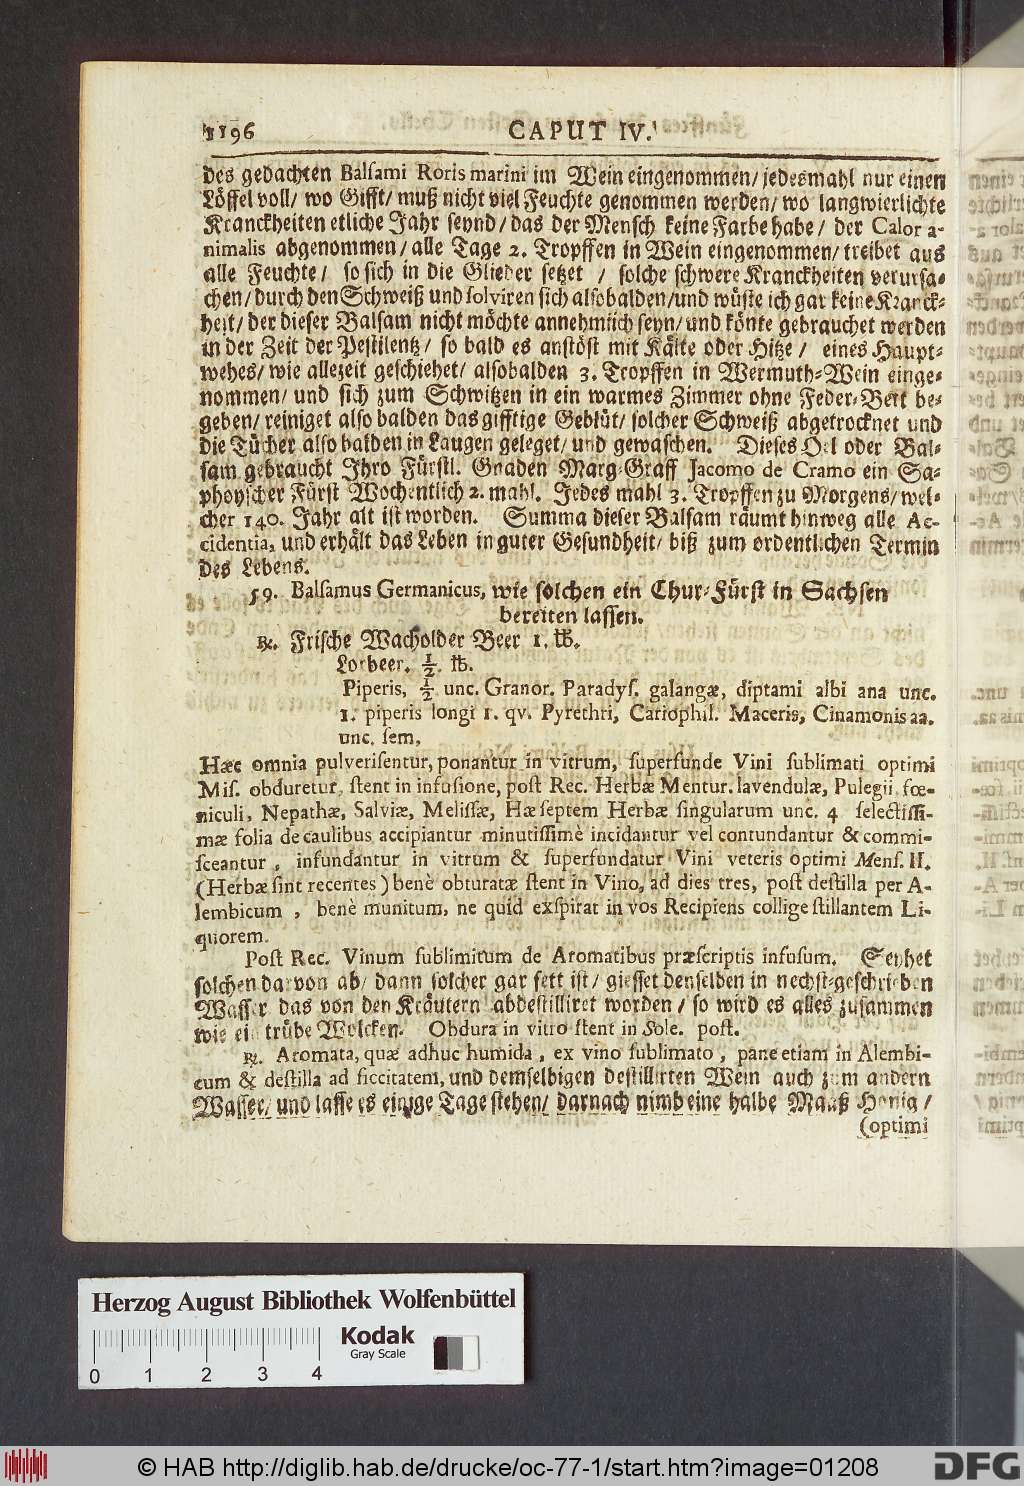 1196 CAPUT IV.
des gedachten Balsami Roris marini im Wein eingenommen/ jedesmahl nur einen
Löffel voll/ wo Gifft/ muß nicht viel Feuchte genommen werden/ wo langwierlichte
Kranckheiten etliche Jahr seynd/ das der Mensch keine Farbe habe/ der Calor a-
nimalis abgenommen/ alle Tage 2. Tropffen in Wein eingenommen/ treibet aus
alle Feuchte/ so sich in die Glieder setzet / solche schwere Kranckheiten verursa-
chen/ durch den Schweiß und solviren sich alsobalden/ und wüste ich gar keine Kranck-
heit/ der dieser Balsam nicht möchte annehmlich seyn/ und könte gebrauchet werden
in der Zeit der Pestilentz/ so bald es anstöst mit Kälte oder Hitze/ eines Haupt-
wehes/ wie allezeit geschiehet/ alsobalden 3. Tropffen in Wermuth-Wein einge-
nommen/ und sich zum Schwitzen in ein warmes Zimmer ohne Feder-Bett be-
geben/ reiniget also balden das gifftige Geblüt/ solcher Schweiß abgetrocknet und
die Tücher also balden in Laugen geleget/ und gewaschen. Dieses Oel oder Bal-
sam gebraucht Ihro Fürstl. Gnaden Marg-Graff Jacomo de Cramo ein Sa-
phoyscher Fürst Wochentlich 2. mahl. Jedes mahl 3. Tropffen zu Morgens/ wel-
cher 140. Jahr alt ist worden. Summa dieser Balsam räumt hinweg alle Ac-
cidentia, und erhält das Leben in guter Gesundheit/ biß zum ordentlichen Termin
des Lebens.
59. Balsamus Germanicus, wie solchen ein Chur-Fürst in Sachsen
bereiten lassen.
℞. Frische Wacholder Beer 1. ℔.
Lorbeer. ½. ℔.
Piperis, ½ unc. Granor. Paradys. galangæ, diptami albi ana unc.
1. piperis longi 1. qv. Pyrethri, Cariophil. Maceris, Cinamonis aa.
unc. sem,
Hæc omnia pulverisentur, ponantur in vitrum, superfunde Vini sublimati optimi
Mis. obduretur, stent in infusione, post Rec. Herbæ Mentur. lavendulæ, Pulegii, fœ-
niculi, Nepathæ, Salviæ, Melissæ, Hæ septem Herbæ singularum unc. 4 selectissi-
mæ folia de caulibus accipiantur minutissimè incidantur vel contundantur & commi-
sceantur, infundantur in vitrum & superfundatur Vini veteris optimi Mens. II.
(Herbæ sint recentes) benè obturatæ stent in Vino, ad dies tres, post destilla per A-
lembicum, benè munitum, ne quid exspirat in vos Recipiens collige stillantem Li-
quorem.
Post Rec. Vinum sublimitum de Aromatibus præscriptis infusum. Seyhet
solchen darvon ab/ dann solcher gar fett ist/ giesset denselben in nechst-geschrieben
Wasser das von den Kräutern abdestilliret worden/ so wird es alles zusammen
wie ein trübe Wolcken. Obdura in vitro stent in Sole. post.
℞. Aromata, quæ adhuc humida, ex vino sublimato, pane etiam in Alembi-
cum & destilla ad siccitatem, und demselbigen destillirten Wein auch zum andern
Wasser/ und lasse es einige Tage stehen/ darnach nimb eine halbe Maaß Honig/
(optimi
Herzog August Bibliothek Wolfenbüttel
Kodak
Gray Scale
0 1 2 3 4
© HAB http://diglib.hab.de/drucke/oc-77-1/start.htm?image=01208
DFG